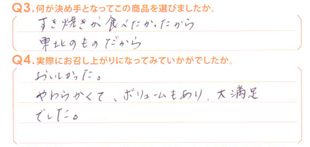 Q3.何が決め手となってこの商品を選びましたか。
すき焼きが食べたかったから
東北のものだから
Q4.実際にお召し上がりになってみていかがでしたか。
おいしかった。
やわらかくて、ボリュームもあり、大満足
でした。